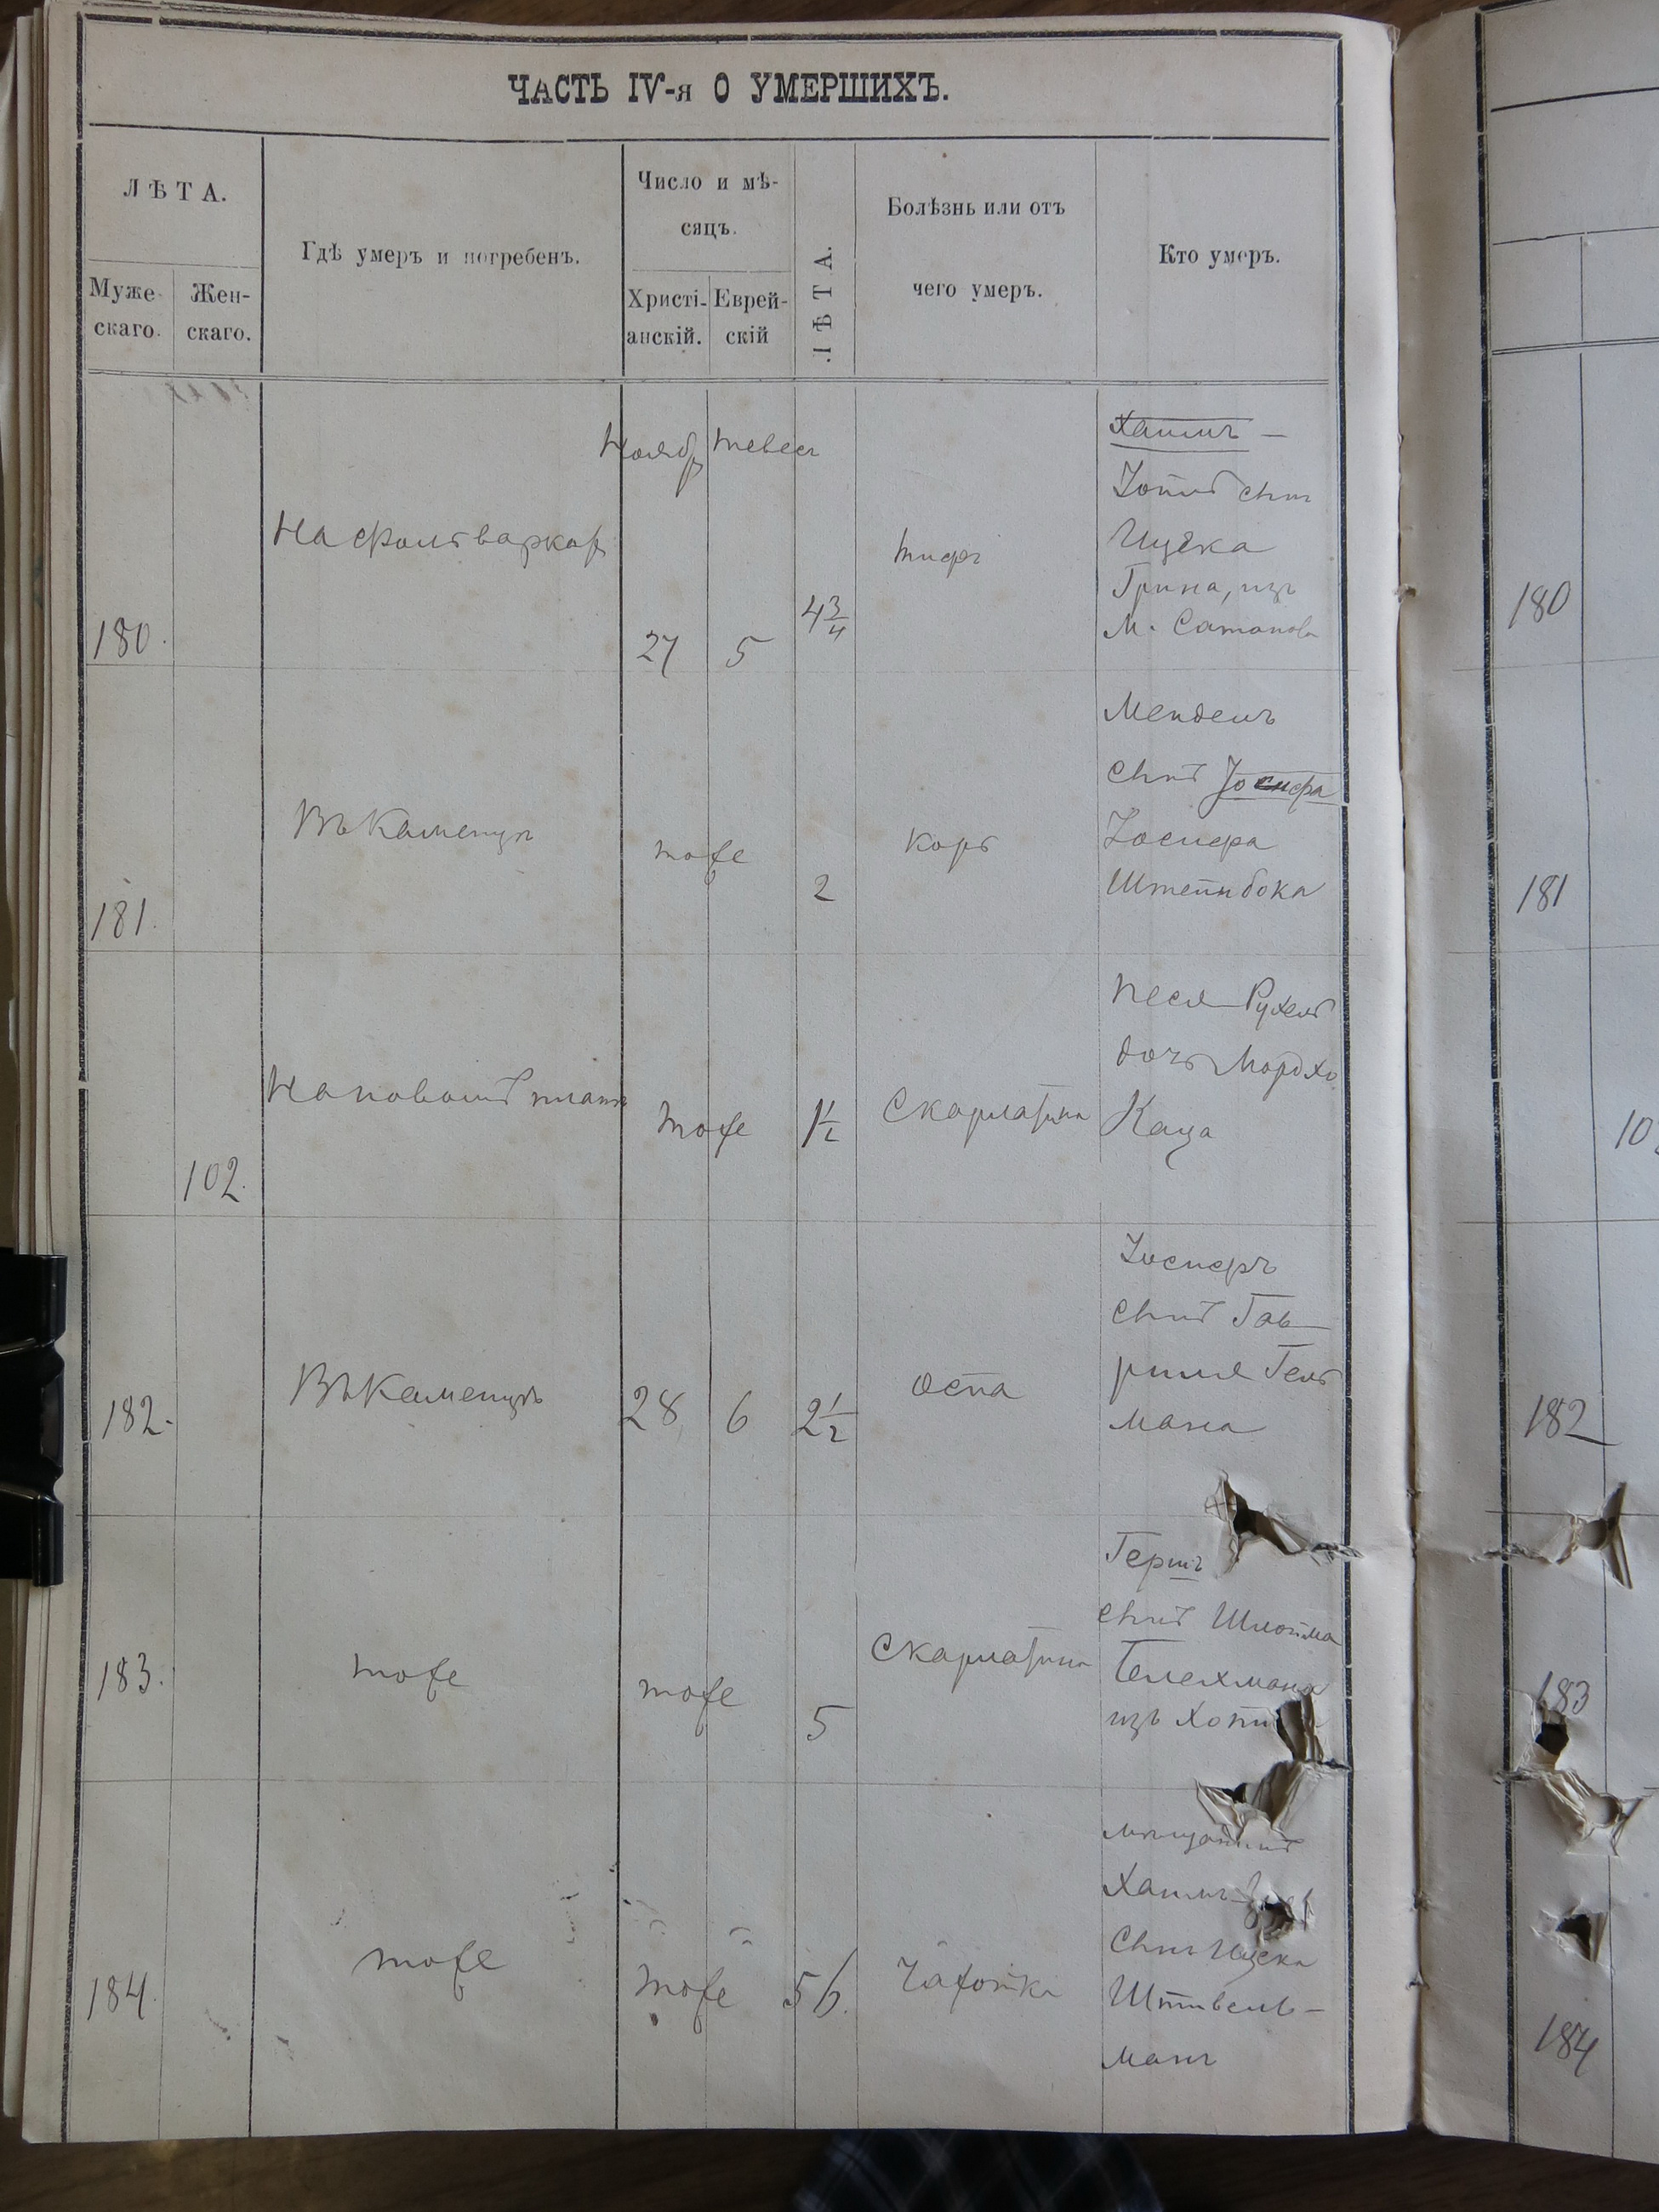 ЧАСТЬ IV-я О УМЕРШИХЪ.
ЛѢТА.
Муже-
скаго.
Жен-
скаго.
Гдѣ умеръ и погребенъ.
Число и мѣ-
сяцъ.
Христі-
анскій.
Еврей-
скій
ЛѢТА.
Болѣзнь или отъ
чего умеръ.
Кто умеръ.
Ноябр Тевес
180.
На Фольваркахъ
27
5
4 3/4
Тифъ
Хаимъ -
сынъ
Ицека
Грина, изъ
м. Сатанова
180
181.
Въ Каменцѣ
тоже
2
Корь
Мендель
сынъ Іосифа
Іосифа
Штейнбока
181
102.
На новомъ планѣ
тоже
1 1/2
Скарлатина
Песя Рухель
дочь Мордхо
Каца
10
182.
Въ Каменцѣ
28
6
2 1/2
Оспа
Іосифъ
сынъ Гав
риля Гель
мана
182
183.
тоже
тоже
5
Скарлатина
Гершъ
сынъ Шлойма
Телехмана
изъ Хоти
183
184.
тоже
тоже
56.
Чахотка
мѣщанинъ
Хаимъ
сынъ Ицека
Штивель-
манъ
184